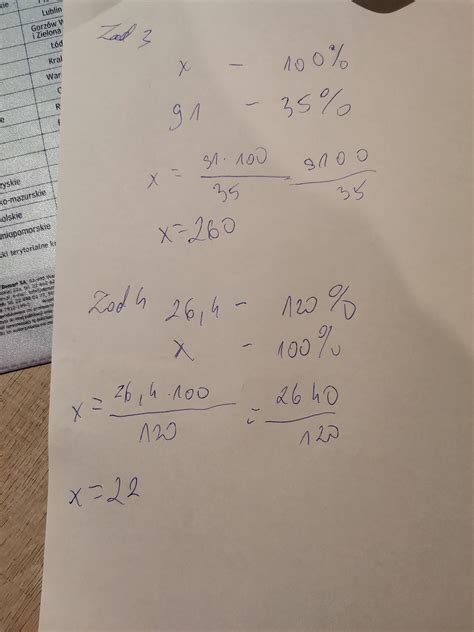 Lublin
Gorzów W
i Zielona
Łód
Kra
War
zyskie
ko-mazurskie
olskie
dniopomorskie
Zad 3
x – 100%
91 – 35%
x = 91·100 9100
35 35
x=260
Zad 4 26,4 – 120%
x – 100%
x = 26,4·100 = 2640
120 120
x=22